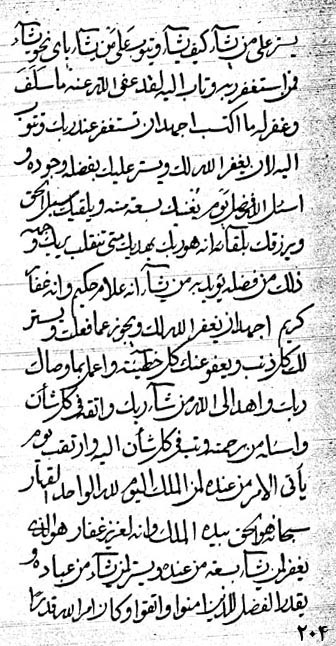 يستر على من يشآء كيف يشآء ويتوب على من يشآء باى نحو يشآء
فمن استغفر ربه وتاب اليه لقد عفى الله عنه ما سلف
وغفر له ما اكتسب اجهد ان تستغفر عند ربك وتتوب
اليه لان يغفر الله لك ويستر عليك بفضله وجوده و
اسئل الله يوم يغنيك بسعة منه ويلقنك سبيل الحق
ويرزقك بلقائه انه هو ربك بهديك حتى تنقلب بربك و
ذلك من فضله يؤيد به من يشآء انه علام حكيم وانه غفار
كريم اجهد ان يغفر الله لك ويجوز عما فعلت ويستر
لك كل ذنب ويعفو عنك كل خطيئة واعمل بما وصاك
ربك واهد الى الله من شآء ربك واتقه فى كل شأن
واسئله من رحمته وتب فى كل شأن اليه وارتقب يوم
يأتى الامر من عنده لمن الملك اليوم لله الواحد القهار
سبحانه هو الحق بيده الملك وانه لعزيز غفار هو الذى
يغفر لمن يشآء بسعة من عنده ويستر لمن يشآء من عباده و
يقدر الفضل للذين امنوا واتقوا وكان امر الله قدرا
٢٠٤